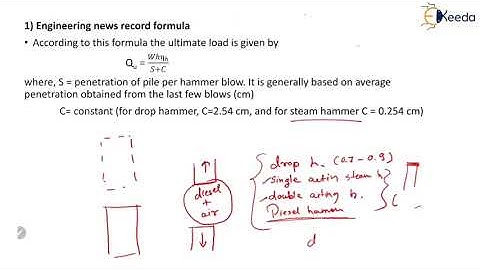 Ekeeda
1) Engineering news record formula
• According to this formula the ultimate load is given by
Qu = Whηh / S+C
where, S = penetration of pile per hammer blow. It is generally based on average
penetration obtained from the last few blows (cm)
C= constant (for drop hammer, C=2.54 cm, and for steam hammer C = 0.254 cm)
drop h. (0.7 - 0.9)
single actin steam h
double acting h.
Diesel hammer
diesel
+
air
d